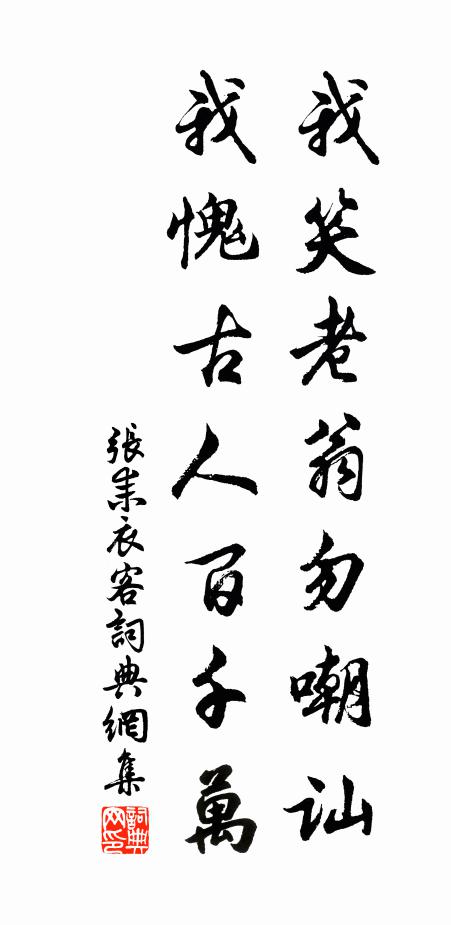 我笑老翁勿嘲訕
我愧古人百千萬
張耒衣客詞典網集
詞典网印